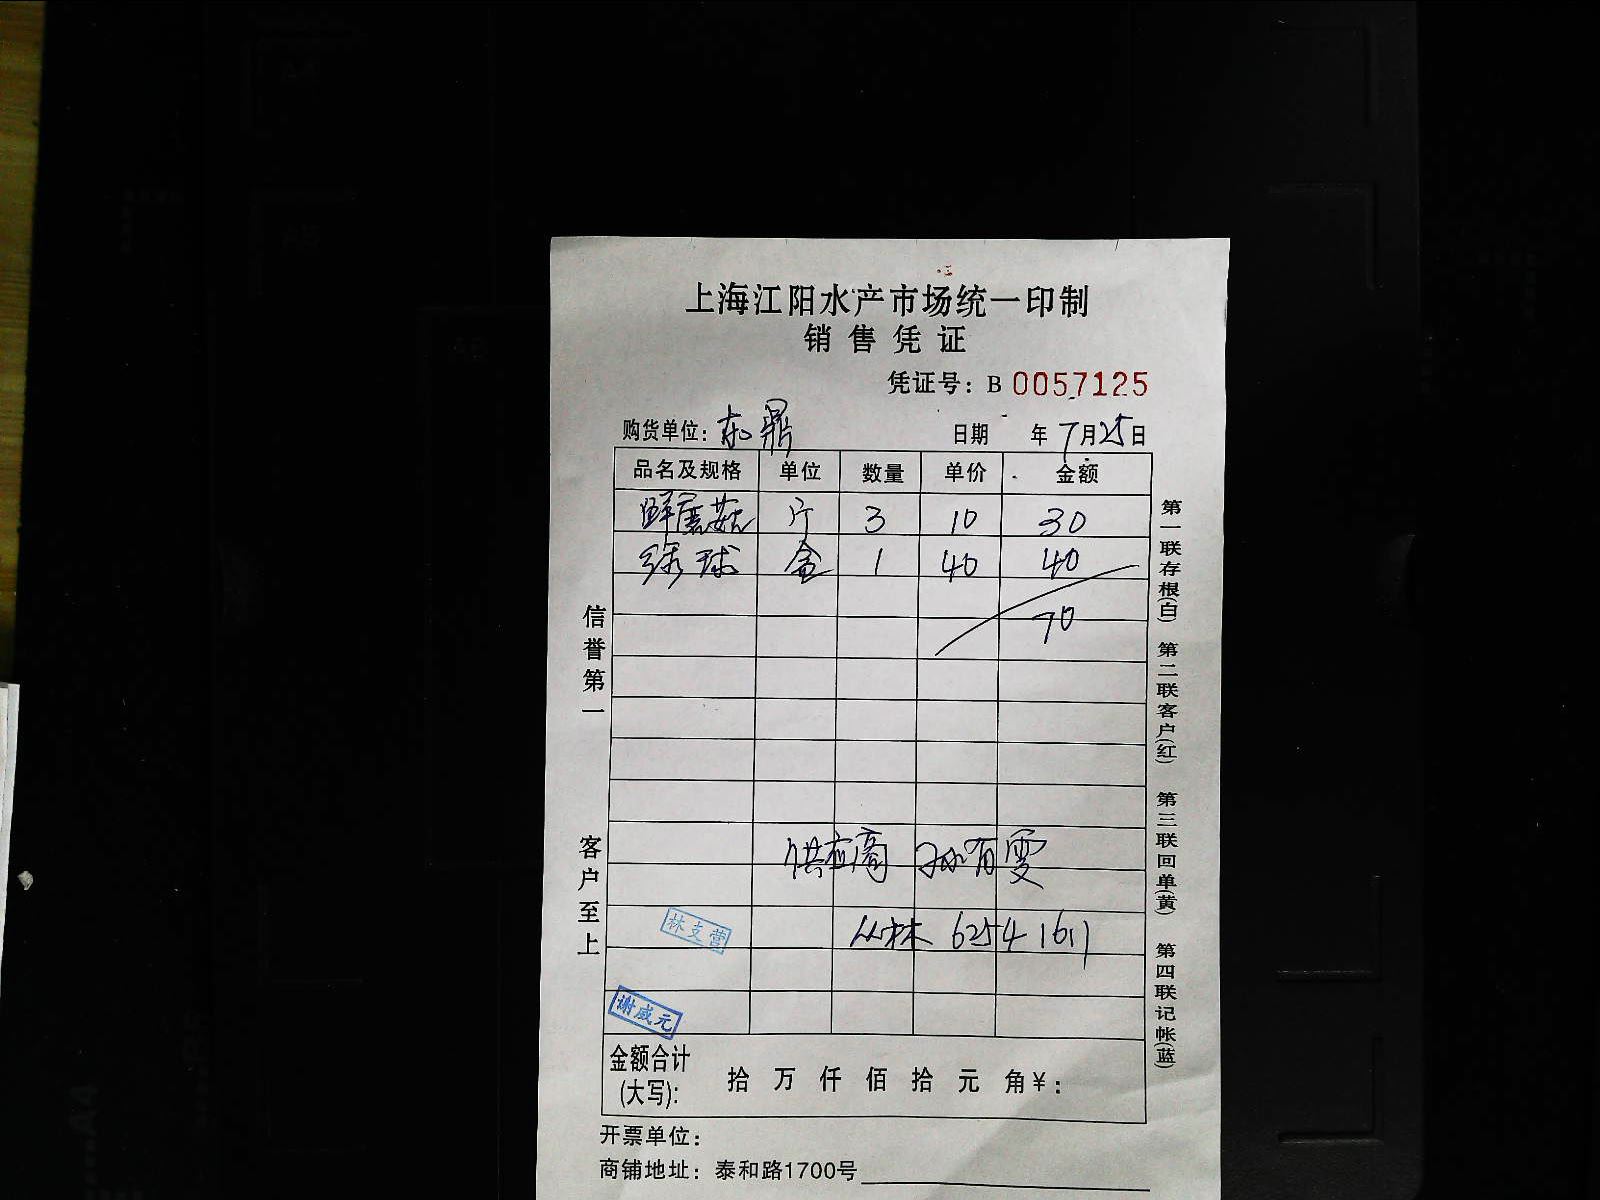 上海江阳水产市场统一印制
销售凭证
凭证号：B 0057125
购货单位：东鼎 日期 年 7月25日
品名及规格 单位 数量 单价 金额
鲜蘑菇 斤 3 10 30
绿球 盒 1 40 40
70
供应商 孙有雯
林 62541611
林支营
谢咸元
金额合计(大写)： 拾 万 仟 佰 拾 元 角￥：
开票单位：
商铺地址：泰和路1700号
信誉第一 客户至上
第一联存根(白) 第二联客户(红) 第三联回单(黄) 第四联记帐(蓝)